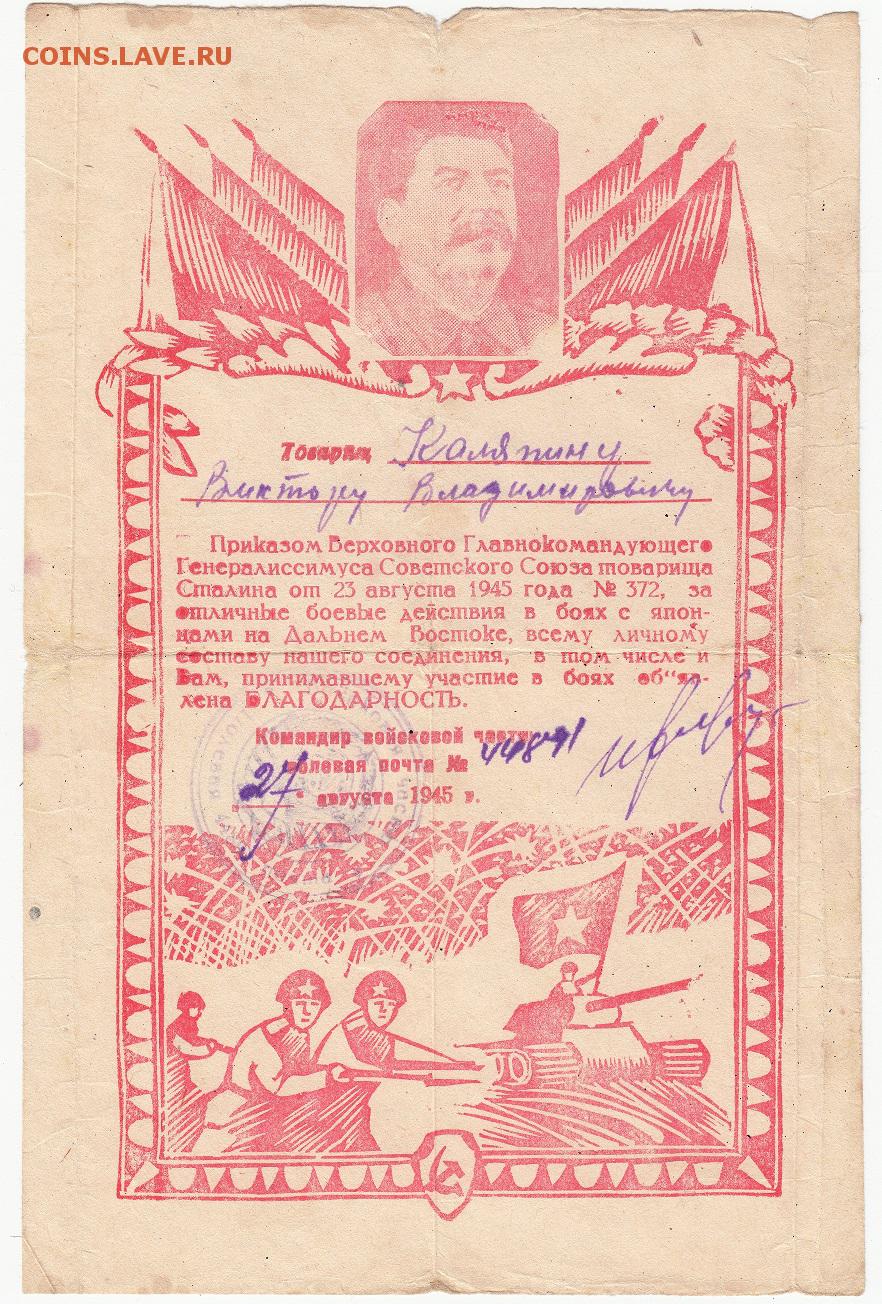 COINS.LAVE.RU
Товарищ Каляпину
Виктору Владимировичу
Приказом Верховного Главнокомандующего
Генералиссимуса Советского Союза товарища
Сталина от 23 августа 1945 года № 372, за
отличные боевые действия в боях с япон-
цами на Дальнем Востоке, всему личному
составу нашего соединения, в том числе и
Вам, принимавшему участие в боях об"яв-
лена БЛАГОДАРНОСТЬ.
Командир войсковой части
полевая почта № 44871
„27“ августа 1945 г.